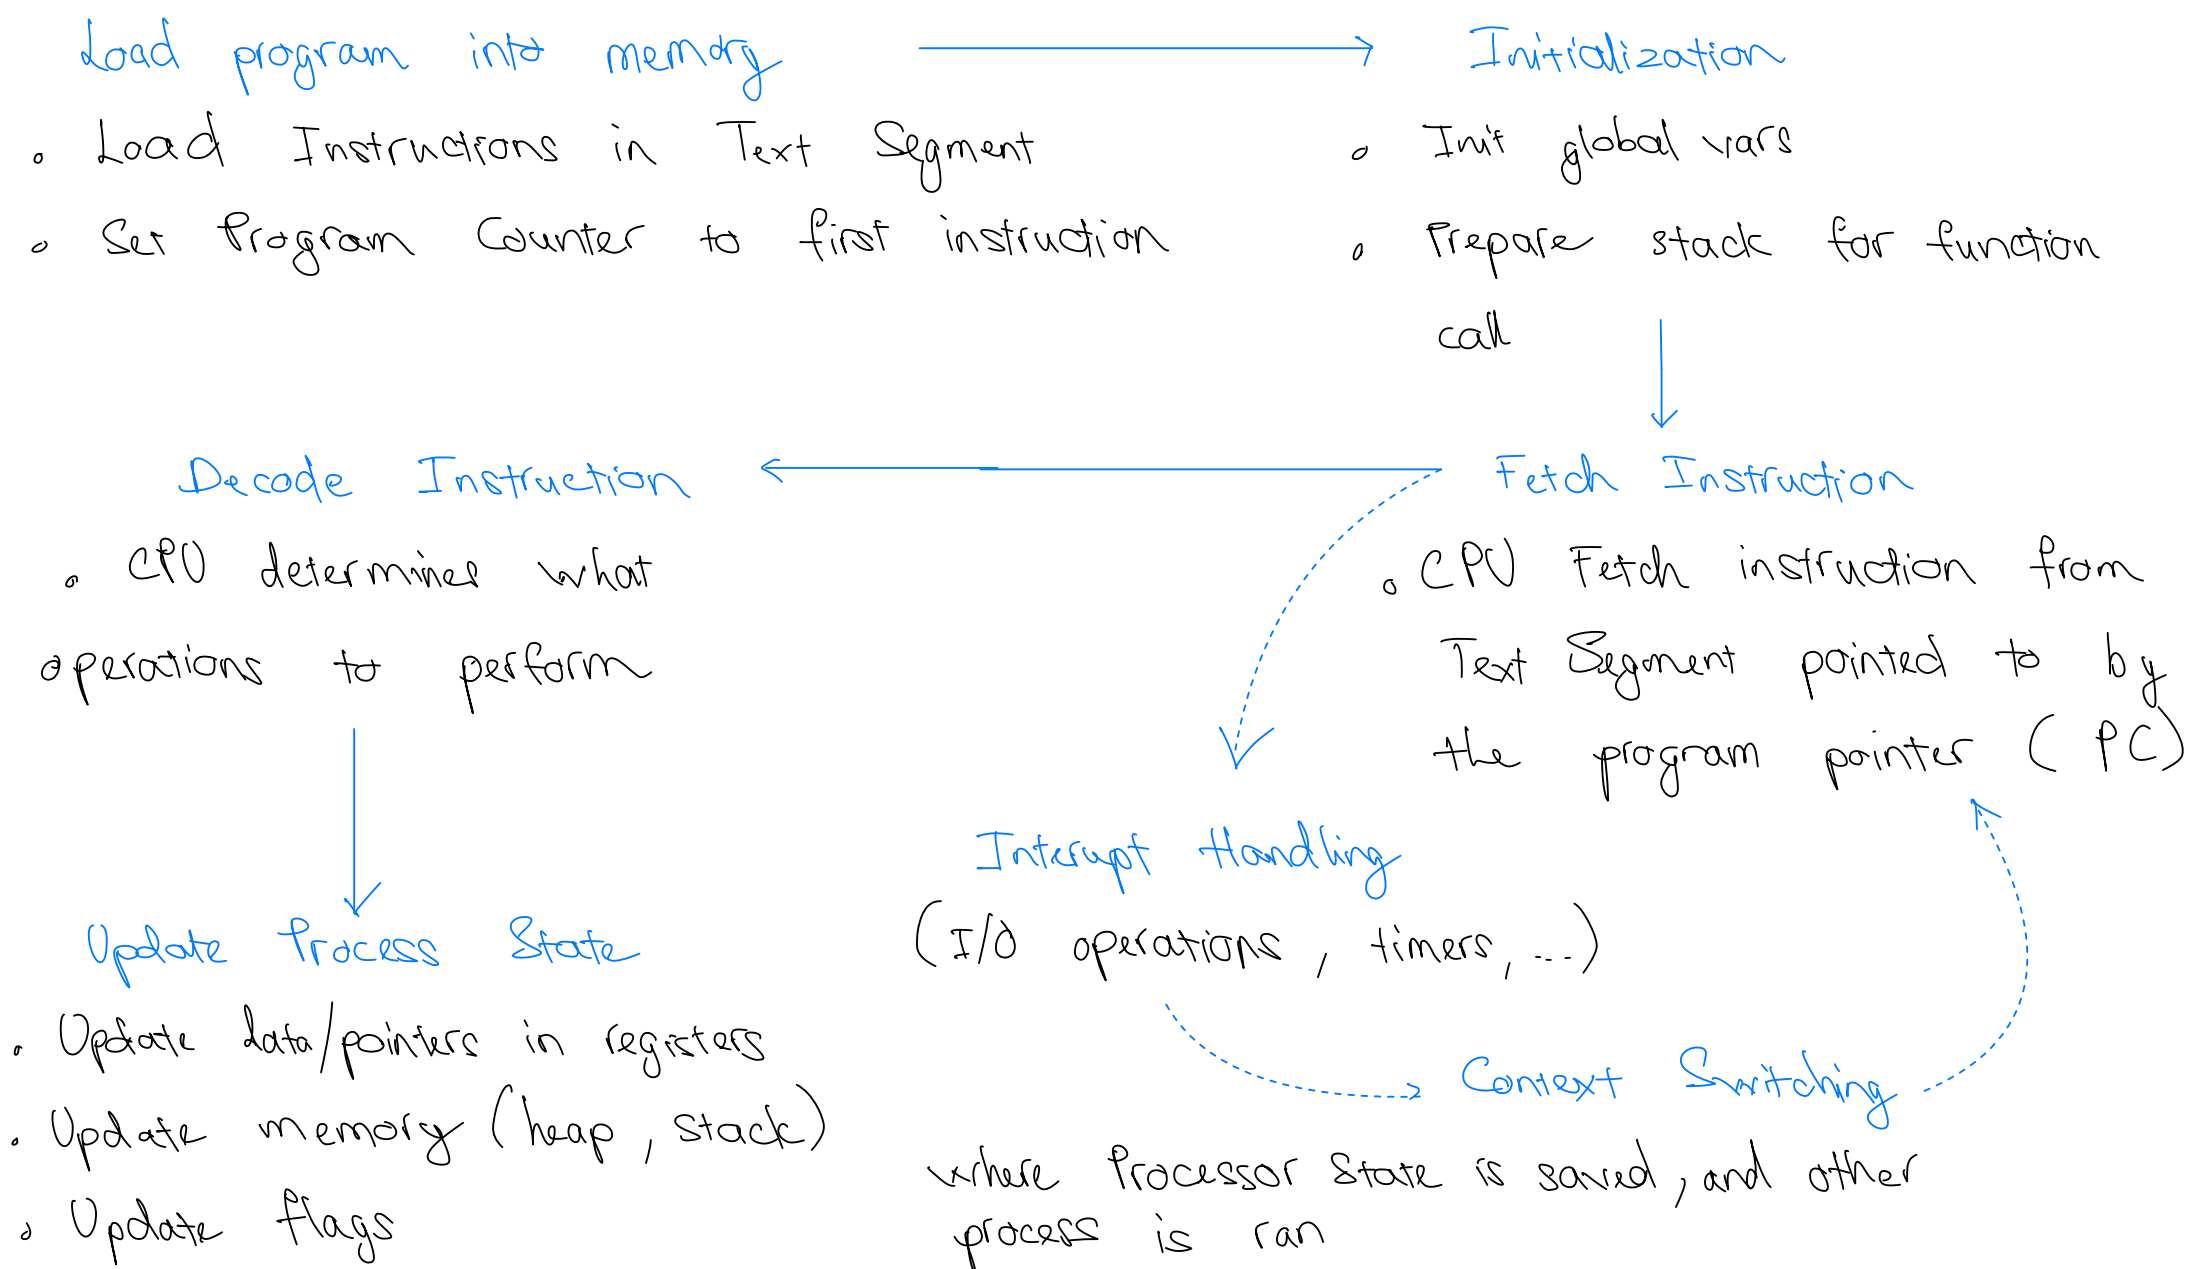 Load program into memory
• Load Instructions in Text Segment
• Set Program Counter to first instruction
Initialization
• Init global vars
• Prepare stack for function
call
Fetch Instruction
• CPU Fetch instruction from
Text Segment pointed to by
the program pointer (PC)
Decode Instruction
• CPU determines what
operations to perform
Update Process State
• Update data/pointers in registers
• Update memory (heap, stack)
• Update flags
Interupt Handling
(I/O operations, timers, ...)
Context Switching
where Processor State is saved, and other
process is ran